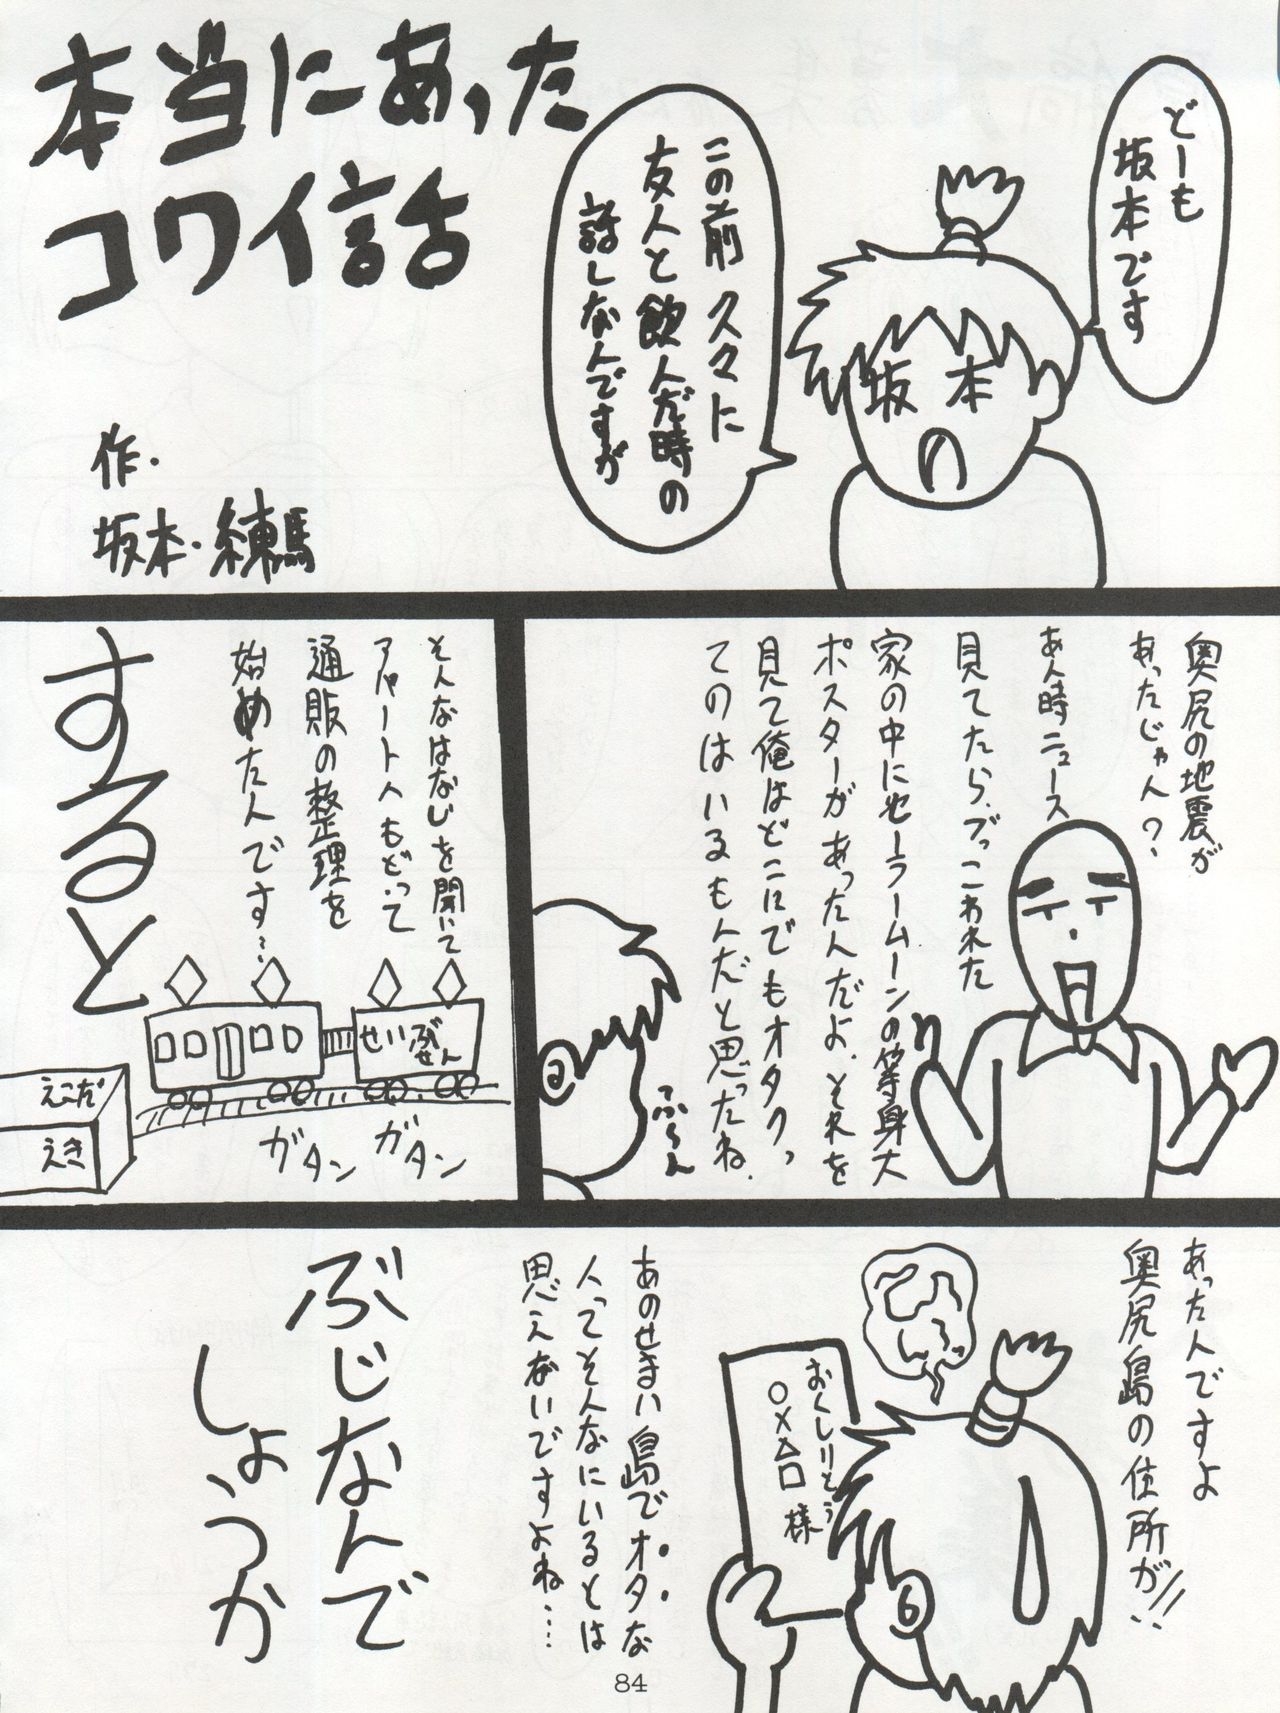 本当にあった
コワイ話
作・
坂本・練馬
どーも
坂本です
坂本
この前 久々に
友人と飲んだ時の
話しなんですが
奥尻の地震が
あったじゃん?
あん時ニュース
見てたら、ブっこわれた
家の中にセーラームーンの等身大
ポスターがあったんだよ、それを
見て俺はどこにでもオタクっ
てのはいるもんだと思ったね、
ふ〜ん
そんなはなしを聞いて
アパートへもどって
通販の整理を
始めたんです…
すると
せいぶせん
えこだ
えき
ガタン
ガタン
あったんですよ
奥尻島の住所が!!
おくしりとう
○×△□様
あのせまい島でオタな
人ってそんなにいるとは
思えないですよね…
ぶじなんで
しょうか
84